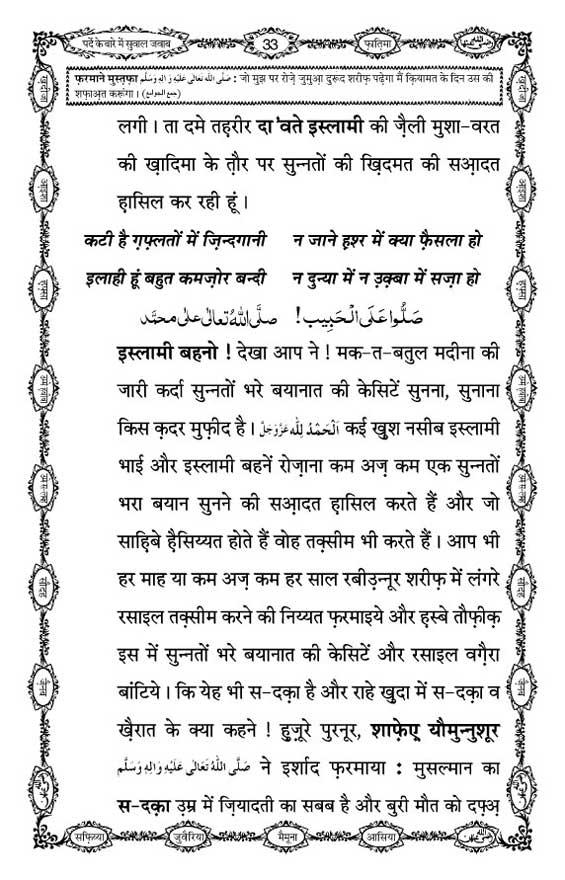 पर्दे के बारे में सुवाल जवाब
33
फ़ातिमा
फ़रमाने मुस्त़फ़ा صَلَّى اللهُ تَعَالٰى عَلَيْهِ وَاٰلِهٖ وَسَلَّم : जो मुझ पर रोज़े जुमुआ़ दुरूद शरीफ़ पढ़ेगा मैं क़ियामत के दिन उस की
शफ़ाअ़त करूंगा। (جمع الجوامع)
लगी। ता दमे तह़रीर दा'वते इस्लामी की ज़ैली मुशा-वरत
की ख़ादिमा के त़ौर पर सुन्नतों की ख़िदमत की सआ़दत
ह़ासिल कर रही हूं।
कटी है ग़फ़्लतों में ज़िन्दगानी न जाने ह़श्र में क्या फ़ैसला हो
इलाही हूं बहुत कमज़ोर बन्दी न दुन्या में न उ़क़्बा में सज़ा हो
صَلُّوا عَلَى الْحَبِيب! صلَّى اللهُ تعالٰى على محمَّد
इस्लामी बहनो ! देखा आप ने ! मक-त-बतुल मदीना की
जारी कर्दा सुन्नतों भरे बयानात की केसिटें सुनना, सुनाना
किस क़दर मुफ़ीद है। اَلْحَمْدُ لِلّٰه عَزَّوَجَلَّ कई ख़ुश नसीब इस्लामी
भाई और इस्लामी बहनें रोज़ाना कम अज़ कम एक सुन्नतों
भरा बयान सुनने की सआ़दत ह़ासिल करते हैं और जो
साह़िबे ह़ैसिय्यत होते हैं वोह तक़्सीम भी करते हैं। आप भी
हर माह या कम अज़ कम हर साल रबीउ़न्नूर शरीफ़ में लंगरे
रसाइल तक़्सीम करने की निय्यत फ़रमाइये और ह़स्बे तौफ़ीक़
इस में सुन्नतों भरे बयानात की केसिटें और रसाइल वग़ैरा
बांटिये। कि येह भी स-दक़ा है और राहे ख़ुदा में स-दक़ा व
ख़ैरात के क्या कहने ! हुज़ूरे पुरनूर, शाफ़ेए़ यौमुन्नुशूर
صَلَّى اللهُ تَعَالٰى عَلَيْهِ وَاٰلِهٖ وَسَلَّم ने इर्शाद फ़रमाया : मुसल्मान का
स-दक़ा उ़म्र में ज़ियादती का सबब है और बुरी मौत को दफ़्अ़
सफ़िय्या
जुवैरिया
मैमूना
आसिया